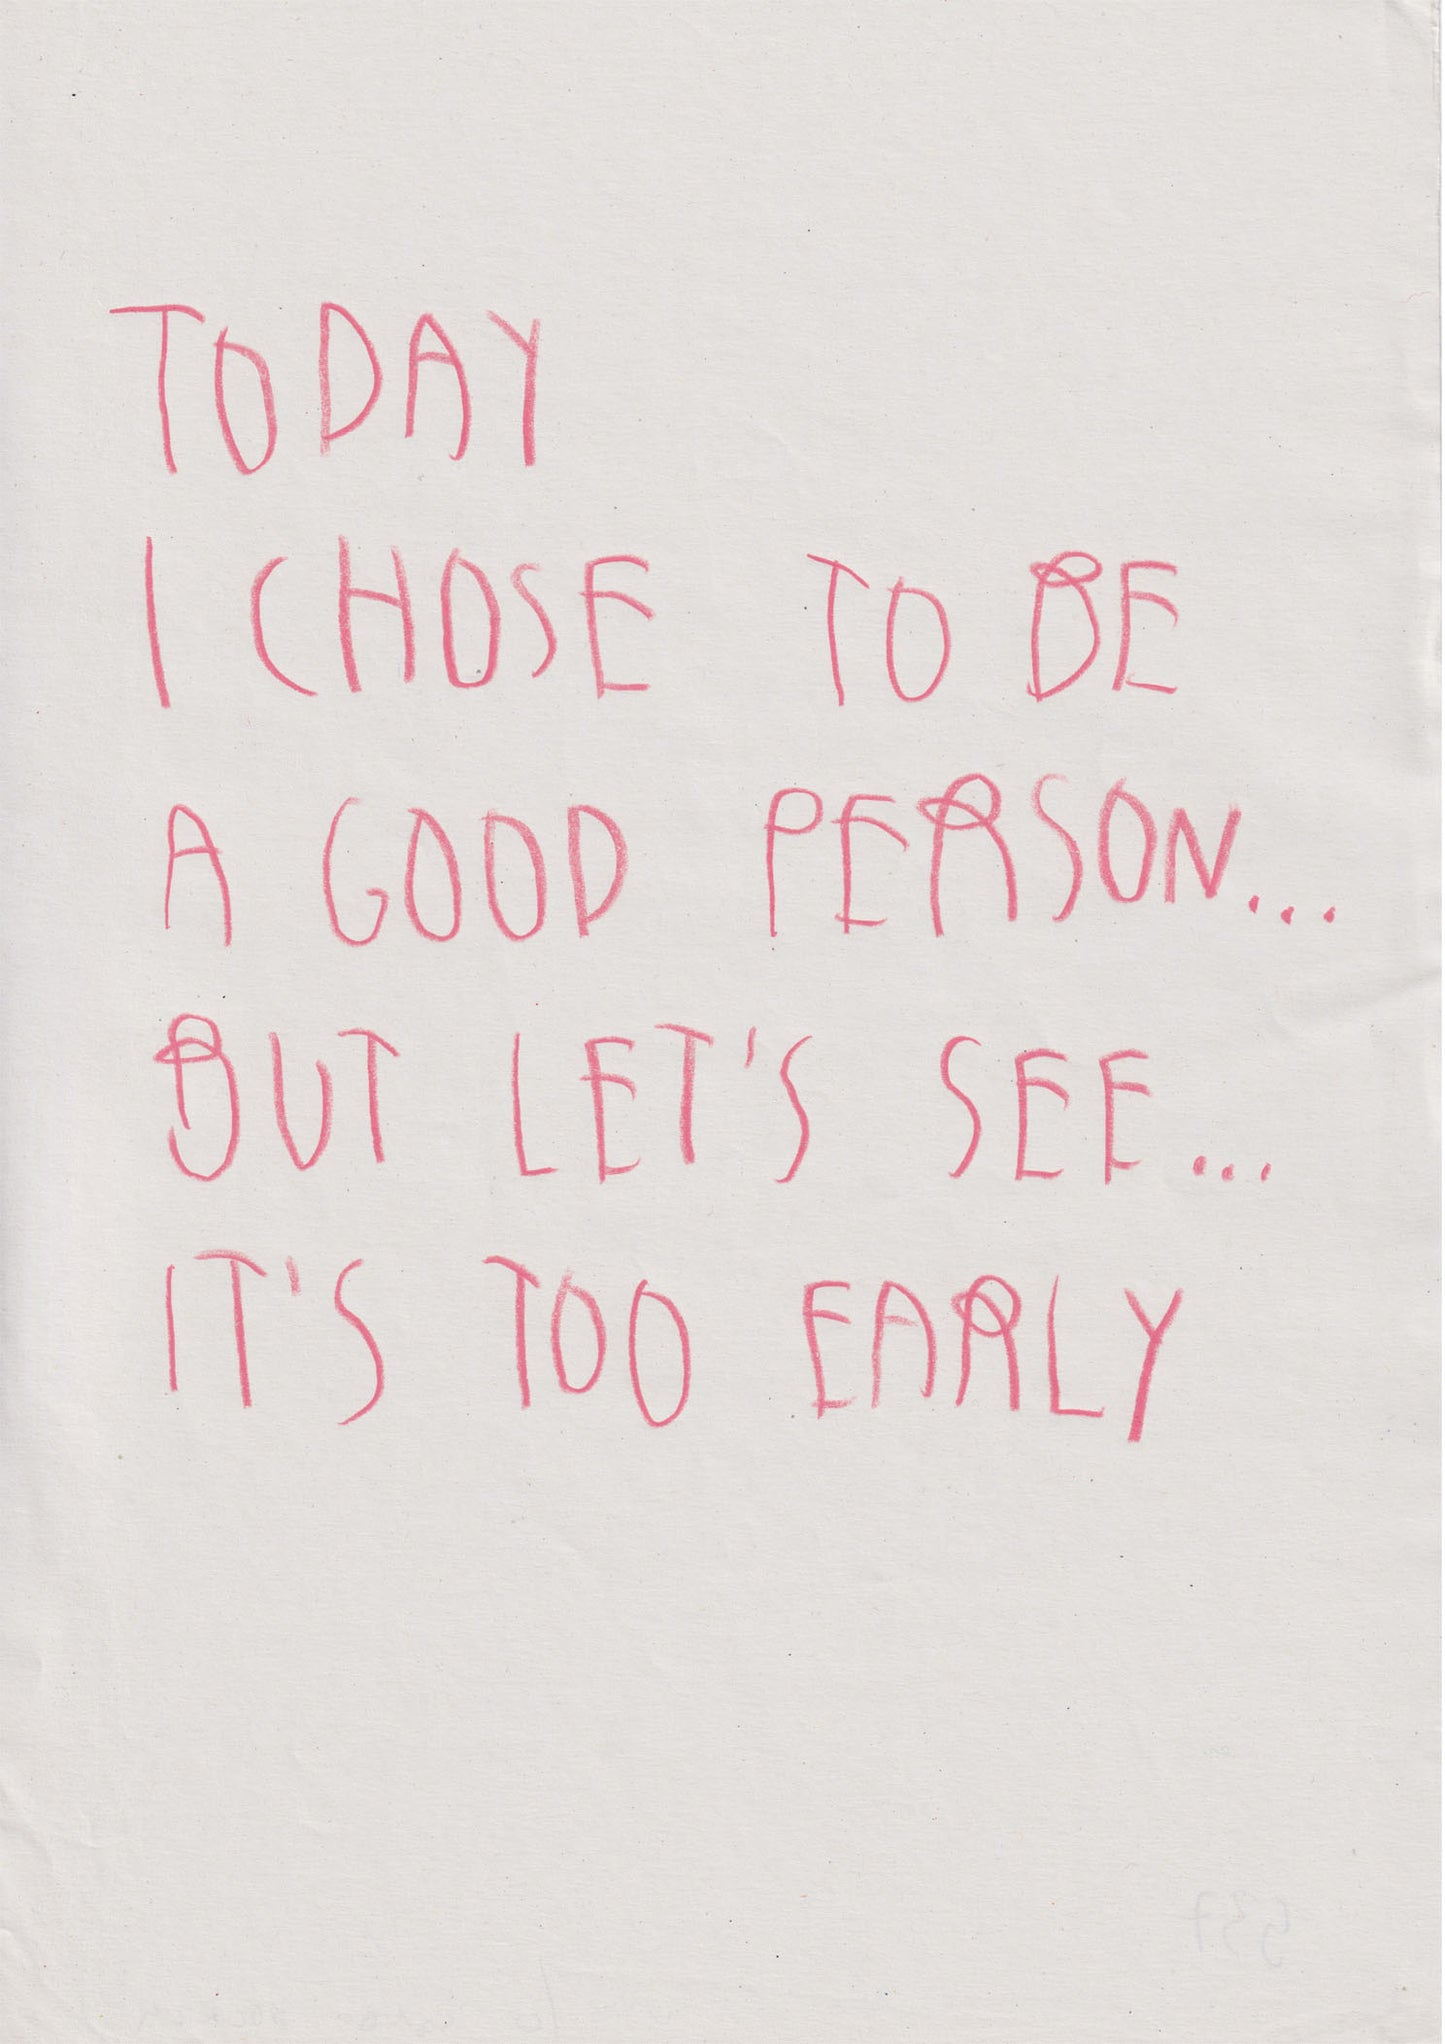 TODAY
I CHOSE TO BE
A GOOD PERSON...
BUT LET'S SEE...
IT'S TOO EARLY